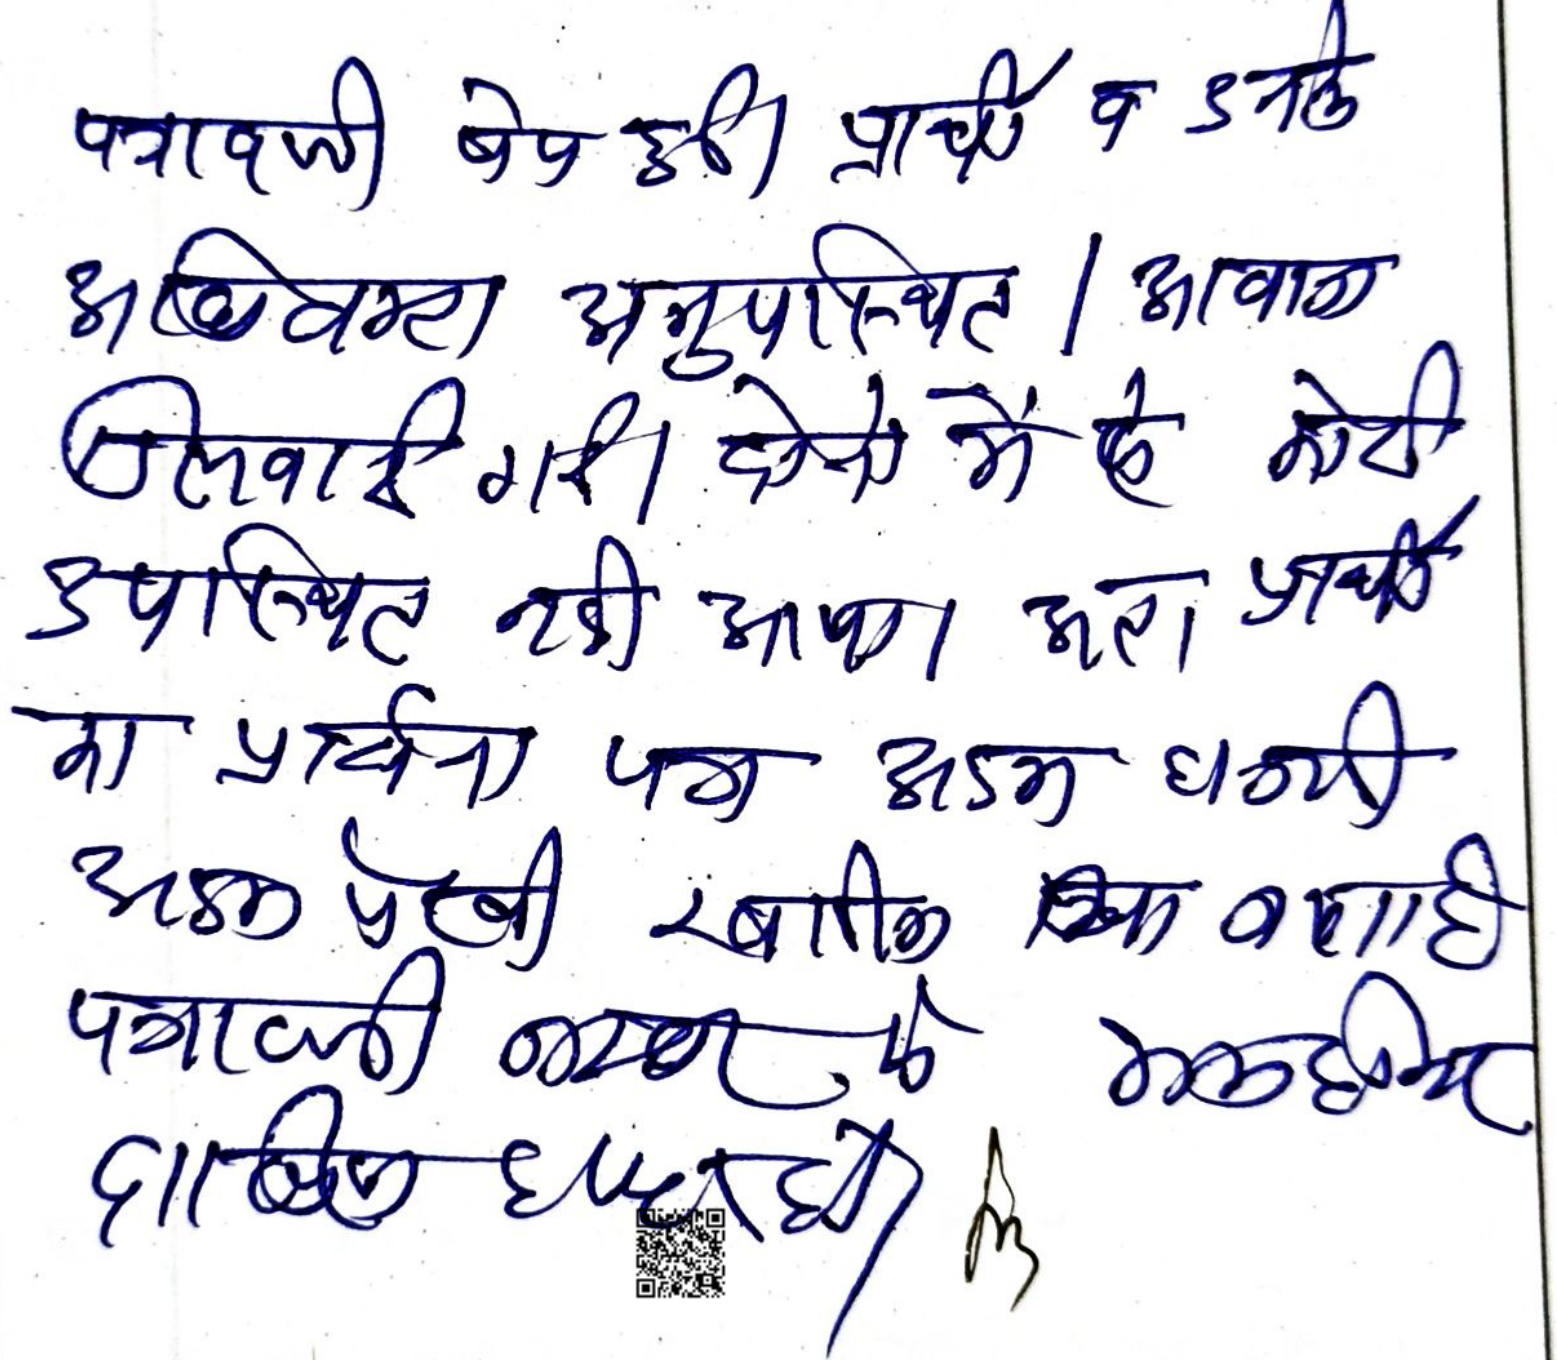 पत्रावली पेश हुई। प्रार्थी व उनके
अधिवक्ता अनुपस्थित। आवाज
दिलवाई गई। दोनो में से कोई
उपस्थित नही आया। अतः प्रार्थी
का प्रार्थना पत्र अदम
अदम पैरवी खारिज किया जाता है
पत्रावली नम्बर से कम होकर
दाखिल दफ्तर हो।